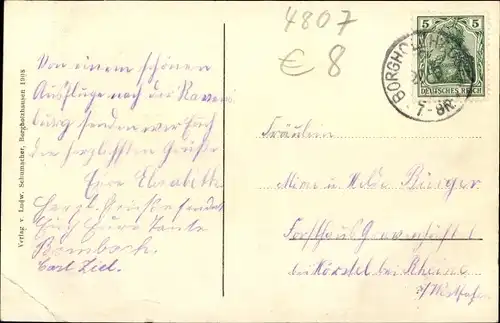 4807
€ 8
5 5
DEUTSCHES REICH
BORGHOL
7-8N
Verlag v. Ludw. Schumacher, Borgholzhausen 1908
Von einem schönen
Ausfluge nach der Ravens
burg senden wir Euch
die herzlichsten Grüße
Eure Elisabeth
Herzl. Grüße sendet
Euch Eure Tante
Carl Ziel.
Fräulein
Mine u. Hilda
bei Hörstel bei Rheine
i/Westfalen